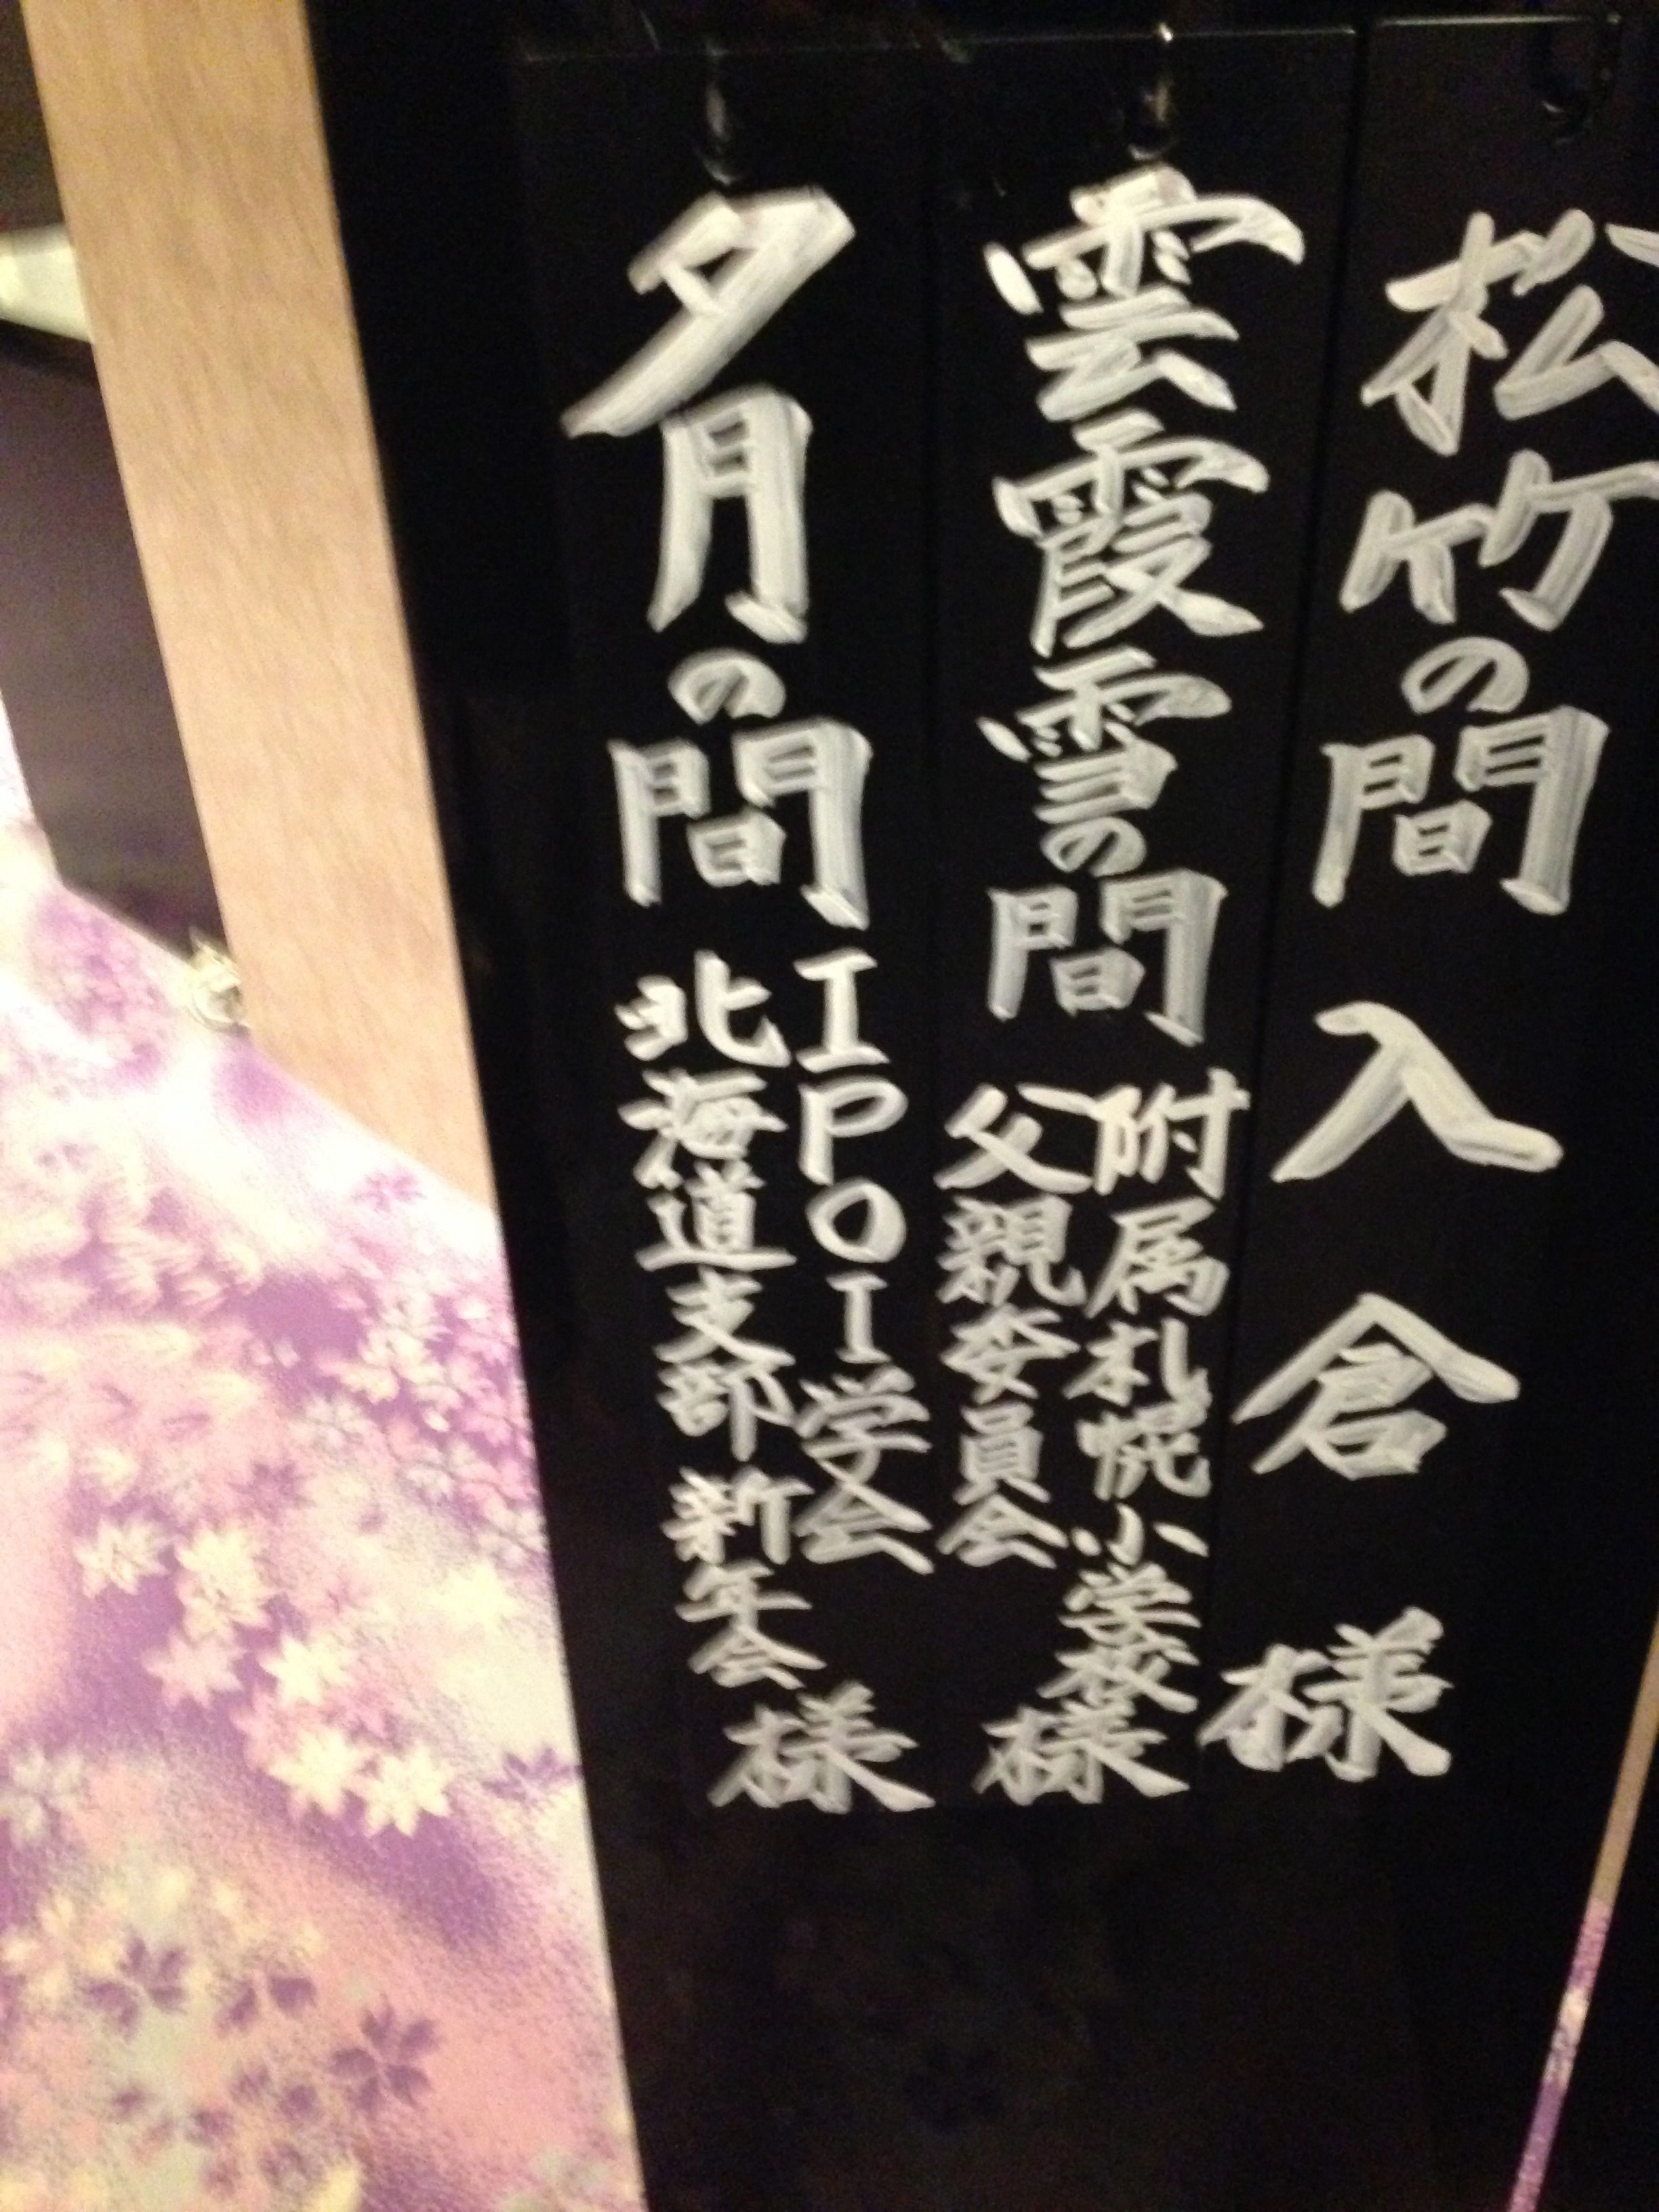 松竹の間 入倉 様
雲霞雪の間 附属札幌小学校
父親委員会 様
夕月の間 IPOI学会
北海道支部新年会 様